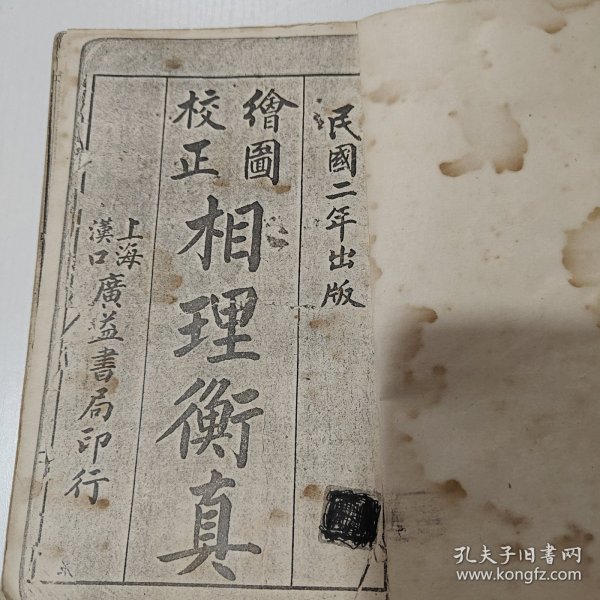 民國二年出版
繪圖
校正
相理衡真
上海
漢口
廣益書局印行
孔夫子旧书网
www.kongfz.com